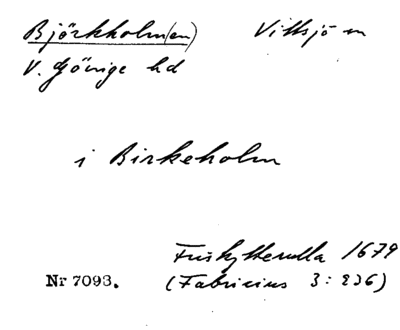 Björkholm(en) Vittsjö sn
V. Göinge hd
i Birkeholm
Friskytterulla 1679
Nr 7093. (Fabricius 3: 236)